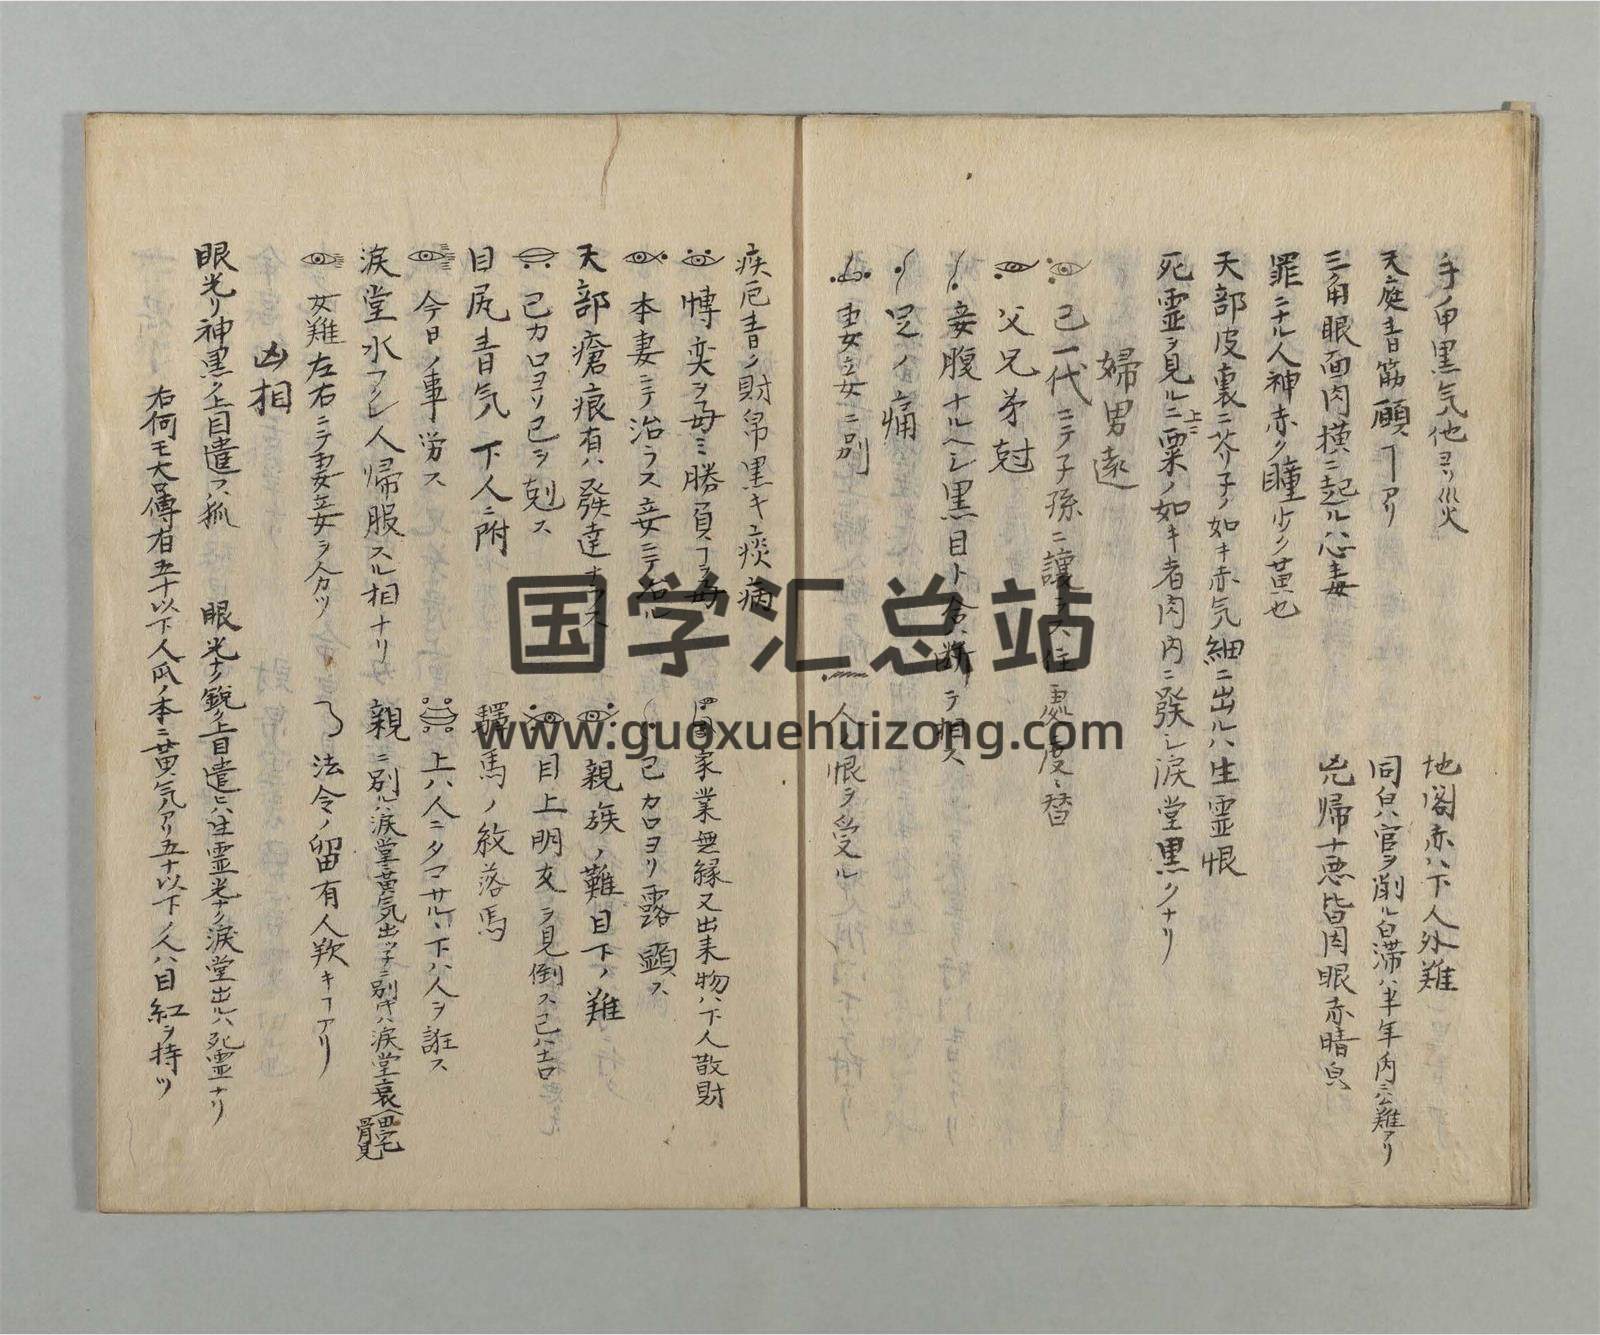 手ノ甲黒気他ヨリ災火
地閣赤ハ下人外難
天庭青筋願ヿアリ
同白ハ官ヲ削ル白滞ハ半年内ニ公難アリ
三角眼面肉横ニ起ルハ心毒
罪ニナル人神赤ク瞳少ク黄也
天部皮裏ニ芥子ノ如キ赤気細ニ出ルハ生霊恨
死霊ヲ見ルニ上ニ粟ノ如キ者肉内ニ發シ涙堂黒クナリ
婦男遠
己一代ニテ子孫ニ讓
處度々替
父兄弟尅
妾腹ナルヘシ黒目ト合
断テ相ス
足ノ痛
妻妾ニ別
人ノ恨ヲ受ル
疾厄青ク財帛黒キ痰病
博奕ヲ毎ニ勝負スヿヲ毎
家業無縁又出来物ハ下人散財
本妻ニテ治ラス妾ニテ治ル
己カロヨリ露顕ス
天部瘡痕有ハ發達ナラス
親族ノ難目下ノ難
己カロヨリ己ヲ剋ス
目上明友ヲ見倒ス己ハ吉
目尻青気下人ニ附
驛馬ノ紋落馬
今日ノ事労ス
上ハ人ニタマサル下ハ人ヲ誑ス
涙堂水
人帰服スル相ナリ
親ニ別ルハ涙堂黄気出
女難左右ニテ妻妾ヲ分カツ
法令ノ留有人歎キヿアリ
凶相
眼光リ神黒ク上目遣フハ狐
眼光ナク鋭ク上目遣ヒハ生霊光ナク涙堂出ルハ死霊ナリ
右何モ大傳有五十以下人爪ノ本ニ黄気アリ五十以下ノ人ハ目紅ヲ持ツ
国学汇总站
www.guoxuehuizong.com